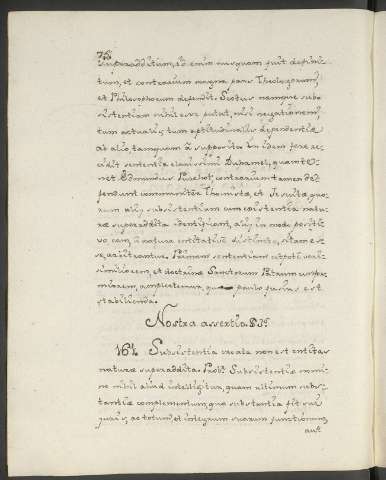 78
superadditum, id enim nusquam fuit defini-
tum, et contrarium magna pars Theologorum,
et Philosophorum defendit. Scotus nampe subs-
istentiam nihil esse putat, nisi negationem,
tum actualis, tum aptitudinalis dependentiæ
ab alio, tamquam à supposito. In idem fere re-
cidit sententia clarissimi Duhamel, quam te-
net Edmundus Purchot, contrarium tamen de-
fendunt communiter Thomistæ, et Jesuitæ quo-
rum alij subsistentiam cum existentia natu-
ræ superaddita identificant, alij in modo positi-
vo, eam, à natura entitative distincto, sitam es-
se arbitrantur. Primam sententiam utpote veri-
similiorem, et doctrinæ Sanctorum Patrum confor-
miorem, amplectemur, quæ paulo fusius est
stabilienda.
Nostra assertio
164 Subsistentia creata non est entitas
naturæ superaddita. Probr. Subsistentiæ nomi-
ne nihil aliud intelligitur, quam ultimum subs-
tantiæ complementum, quo substantia fit sui
juris, ac totum, et integrum suarum functionum,
aut